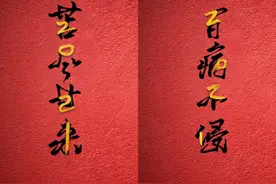 苦尽甘来
百病不侵